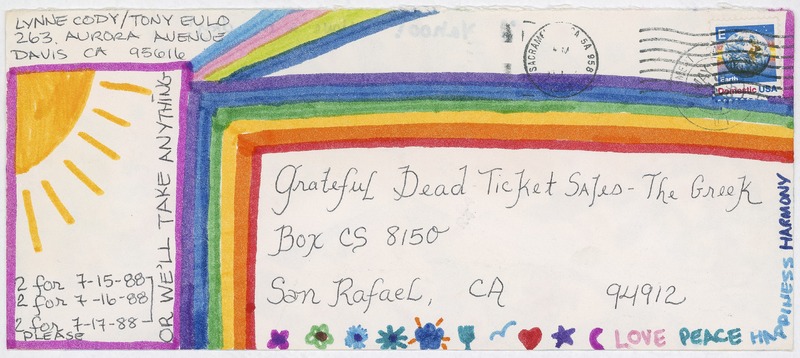 LYNNE CODY/TONY EULO
263 AURORA AVENUE
DAVIS CA 95616
SACRAMENTO CA 958
E
Earth
Domestic USA
2 for 7-15-88
2 for 7-16-88
2 for 7-17-88
PLEASE
OR WE'LL TAKE ANYTHING
Grateful Dead Ticket Sales - The Greek
Box CS 8150
San Rafael, CA 94912
LOVE PEACE HAPPINESS HARMONY